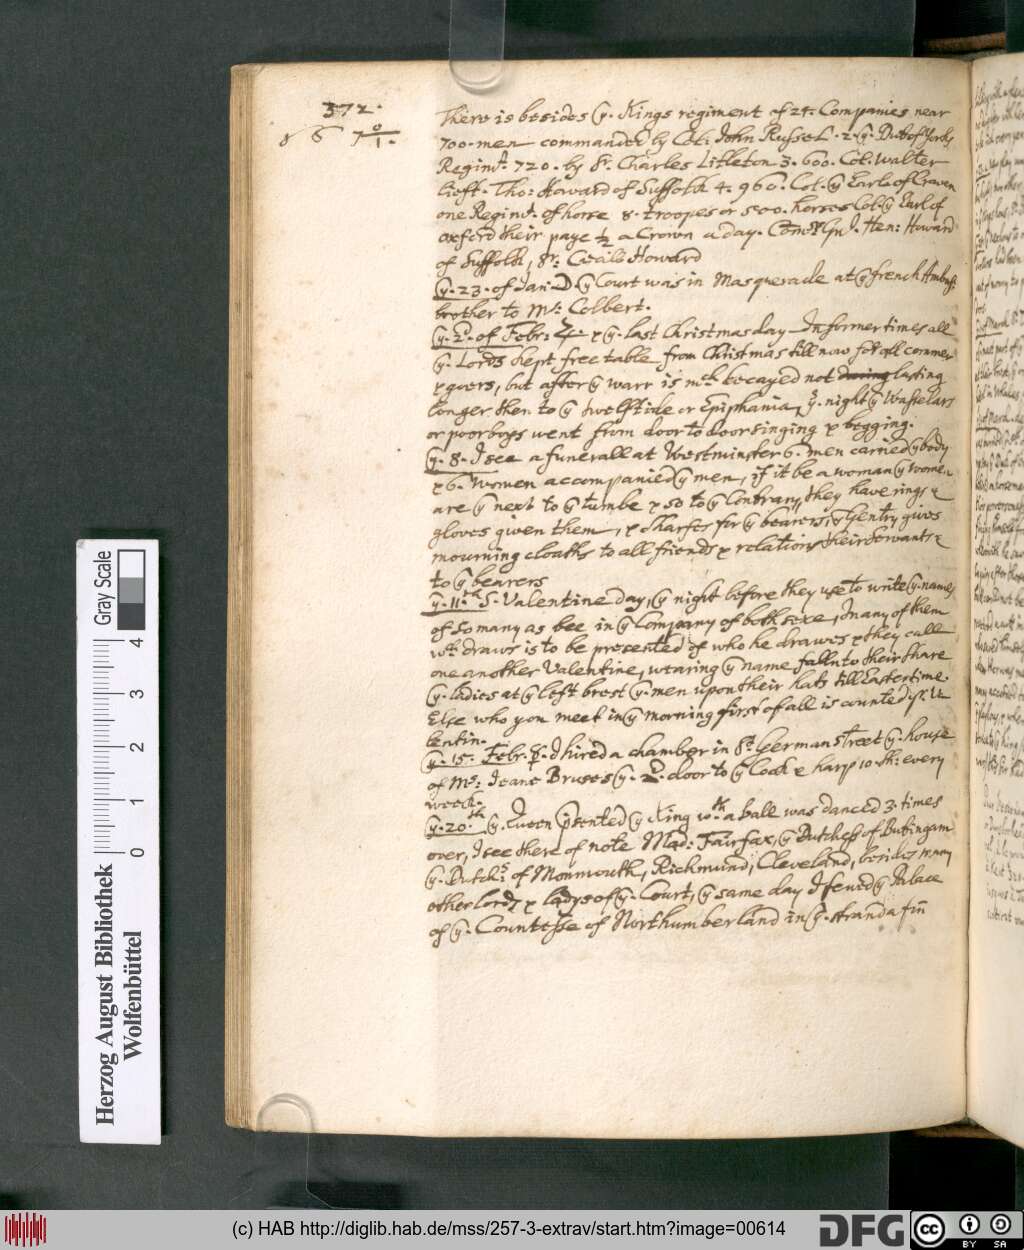 372.
1 6 7 0/1.
There is besides ye. Kings regiment of 24. Companies near
700. men commanded by Col: John Russel. 2. ye. Duke of Yorks
Regimt. 720. by Sr. Charles Littleton 3. 600. Col. Walter
lieft. Tho: Howard of Suffolk 4. 960. Col. ye Earl of Craven
one Regimt. of horse 8. troopes or 500. horses Col. ye Earl of
oxford their paye ½ a Crown a day. Hen: Howard
of Suffolk, Sr: Cecili Howard
ye. 23. of Jan: ye Court was in Masquerade at ye french Ambass:
brother to Mr. Colbert.
ye. 2d. of Febr: x ye. last Christmas day In former times all
ye. Lords kept free table from Christmas till now for all commers
x goers, but after ye warr is mch decayed not during lasting
longer then to ye twelftide or Epiphania, ye. night ye Wasselars
or poor boys went from door to door singing x begging.
ye. 8. I see a funerall at Westminster 6. men carried ye body
x 6. women accompanied ye men, if it be a woman ye women
are ye next to ye tumbe x so to ye Contrary, they have rings &
gloves given them, x scharfes for ye bearers, ye Gentry gives
mourning cloaths to all friends x relations their servants &
to ye bearers
ye. 11.th S. Valentine day, ye night before they use to write ye. names
of so many as bee in ye Company of both sexe, many of them
wch. draws is to be presented of who he drawes x they call
one another Valentine, wearing ye name falln to their share
ye. ladies at ye left brest ye. men upon their hats till Eastertime.
Else who you meet in ye morning first of all is counted yr. Va
lentin.
ye. 15. Febr. I hired a chamber in St. German street ye. house
of Ms: Jeane Bruses ye. 2d. door to ye Cock & harp 10 sh: every
week.
ye. 20.th ye. Queen psented ye King wth. a ball was danced 3. times
over, I see there of note Mad: Fairfax, ye Dutchess of Bukingam
ye. Dutchs. of Monmouth, Richmund, Cleveland, besides many
other lords x ladys of ye. Court, ye same day I ye Palace
of ye. Countesse of Northumberland in ye. strand a fin
Herzog August Bibliothek
Wolfenbüttel
Gray Scale
0 1 2 3 4
(c) HAB http://diglib.hab.de/mss/257-3-extrav/start.htm?image=00614
DFG
cc BY SA